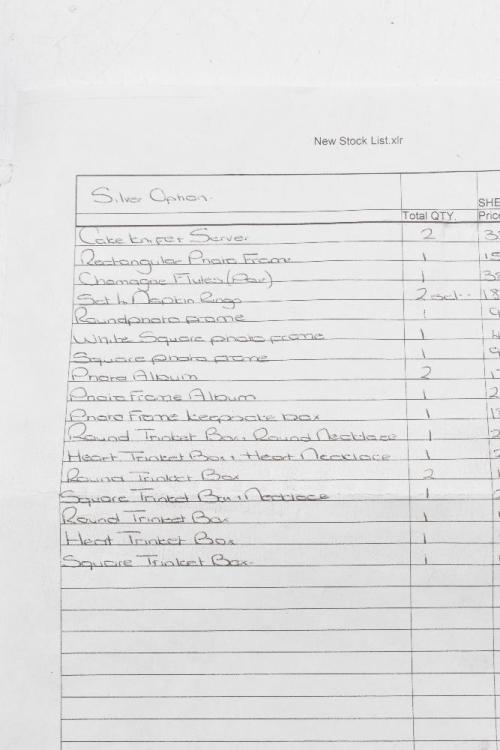 New Stock List.xlr
Silver Option.
SHE
Total QTY. Price
Cake knife & Server 2 3
Rectangular Photo Frame 1 15
Chamagne Flutes (Pair) 1 3
Set 4 Napkin Rings 2 set 18
Round photo frame 1 9
White Square photo frame 1
Square photo frame 1 9
Photo Album 2 1
Photo Frame Album 1 2
Photo Frame keepsake box 1 1
Round Trinket Box + Round Necklace 1 2
Heart Trinket Box + Heart Necklace 1 2
Round Trinket Box 2 1
Square Trinket Box + Necklace 1 2
Round Trinket Box 1
Heat Trinket Box 1
Square Trinket Box 1